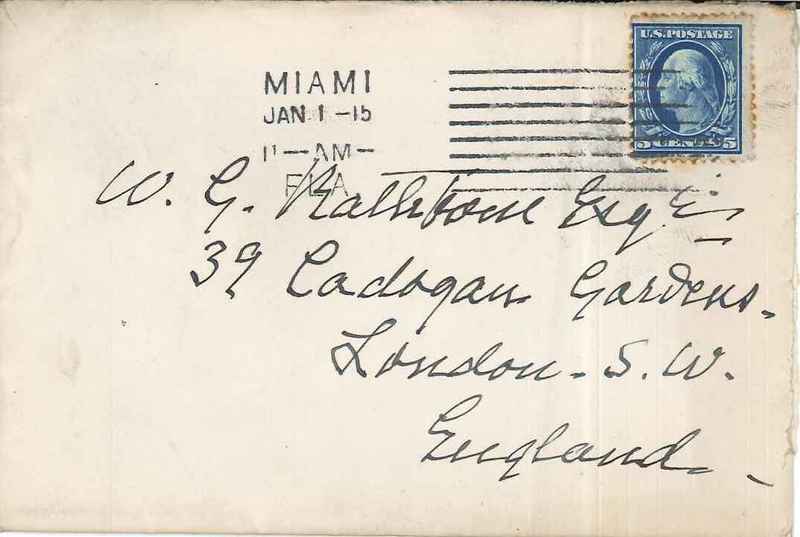 U.S. POSTAGE
5 CENTS 5
MIAMI
JAN 1 -15
11-AM-
FLA.
W. G. Rathbone Esqre
39 Cadogan Gardens.
London. S. W.
England.